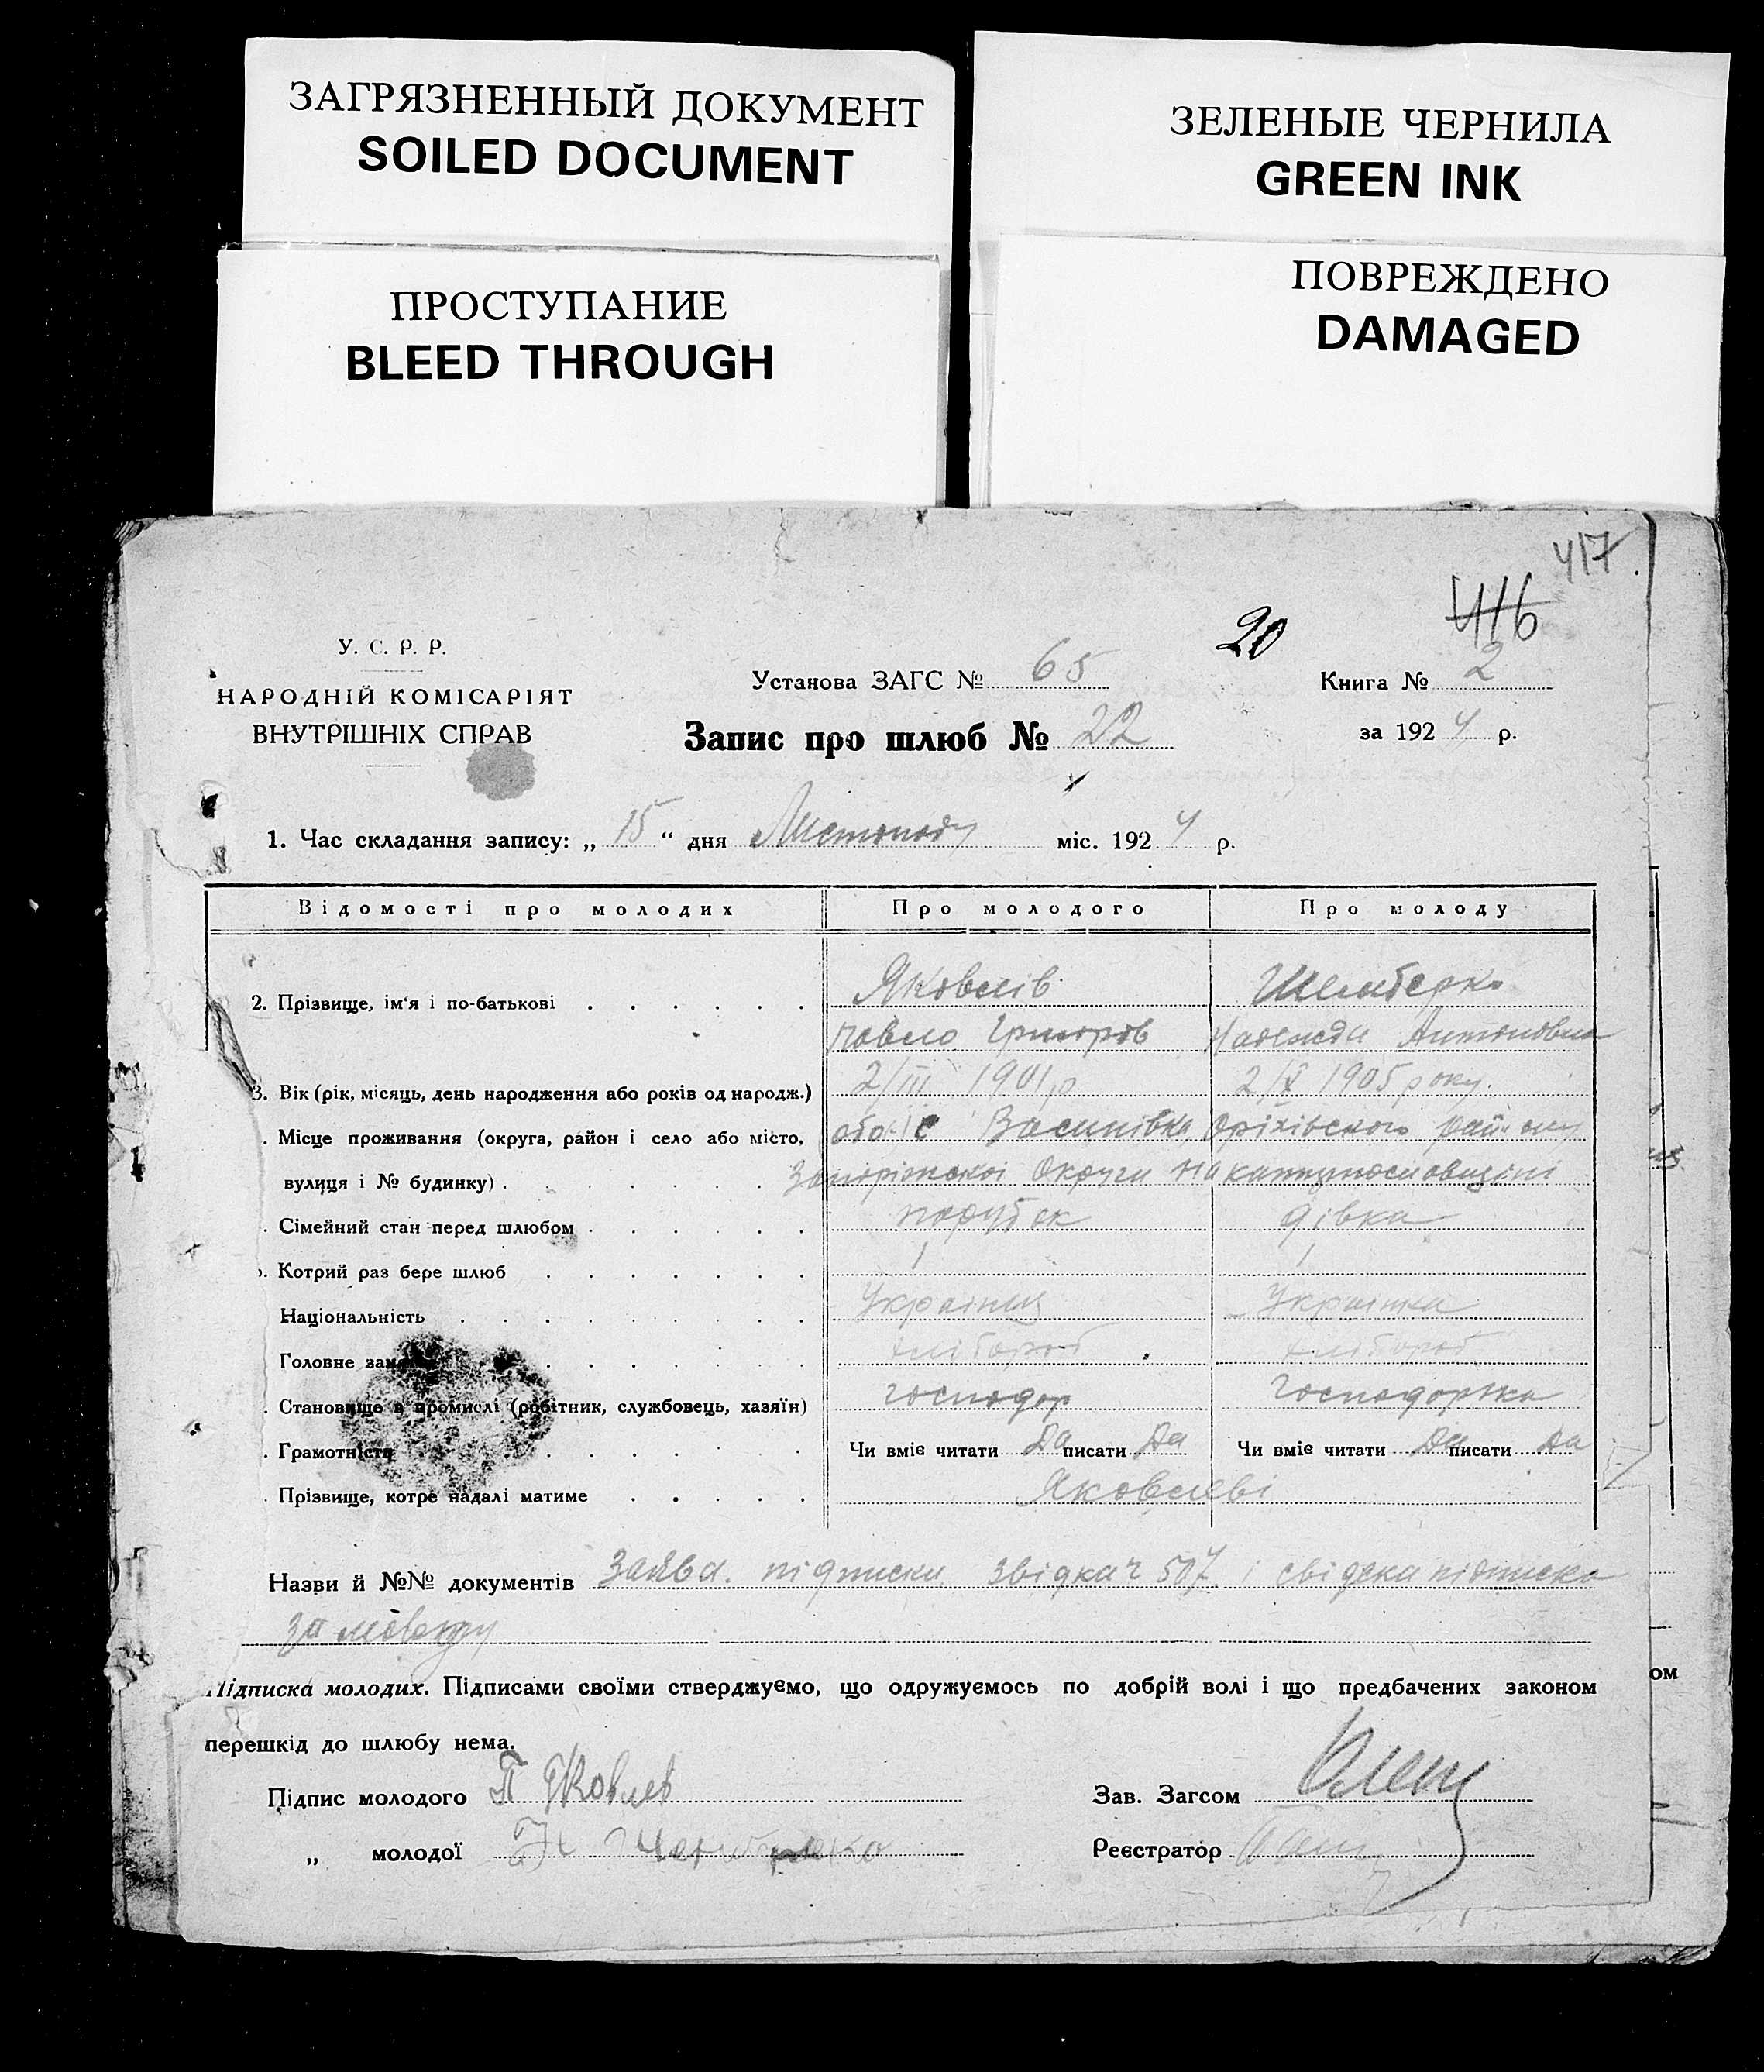 ЗАГРЯЗНЕННЫЙ ДОКУМЕНТ
SOILED DOCUMENT
ЗЕЛЕНЫЕ ЧЕРНИЛА
GREEN INK
ПРОСТУПАНИЕ
BLEED THROUGH
ПОВРЕЖДЕНО
DAMAGED
417
416
20
У. С. Р. Р.
НАРОДНІЙ КОМІСАРІЯТ
ВНУТРІШНІХ СПРАВ
Установа ЗАГС № 65
Книга № 2
Запис про шлюб № 22
за 1924 р.
1. Час складання запису: „ 15 “ дня Листопаду міс. 1924 р.
Відомості про молодих Про молодого Про молоду
2. Прізвище, ім'я і по-батькові Яковлів
Павло Григоров Надежда Антоновна
3. Вік (рік, місяць, день народження або років од народж.) 2/III 1901 р 2/X 1905 року.
. Місце проживання (округа, район і село або місто, обоє с Василівка, Оріхівского району
вулиця і № будинку) Запоріжскоі Округи на
. Сімейний стан перед шлюбом парубок дівка
. Котрий раз бере шлюб 1 1
Національність Украінец Украінка
Головне хлібороб хлібороб
. Становище в промислі (робітник, службовець, хазяїн) господар Господарька
. Грамотність Чи вміє читати Да писати Да Чи вміє читати Да писати Да
. Прізвище, котре надалі матиме Яковлеві
Назви й №№ документів Заява. підписки звідка ч 507 і підписка
за
Підписка молодих. Підписами своїми стверджуємо, що одружуємось по добрій волі і що предбачених законом
ом
перешкід до шлюбу нема.
Підпис молодого П Яковлев
Зав. Загсом
„ молодої Н
Реєстратор